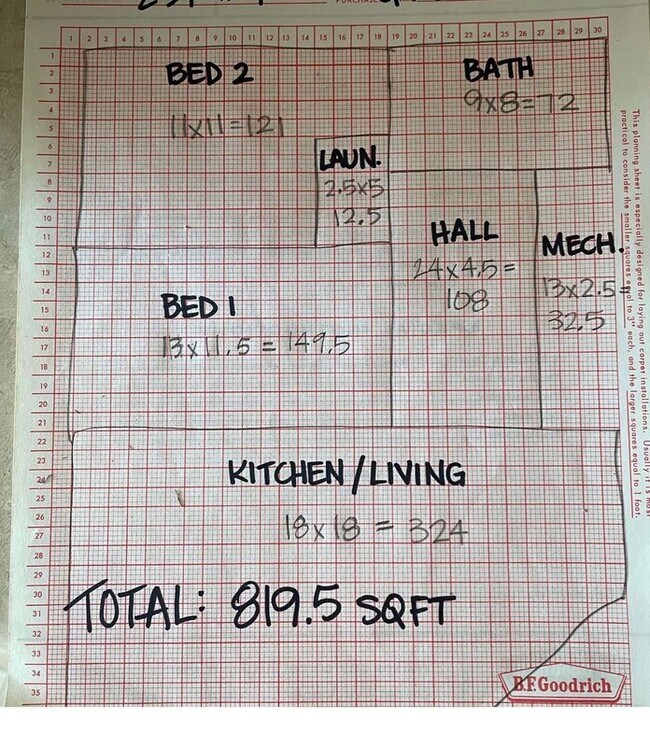 1 2 3 4 5 6 7 8 9 10 11 12 13 14 15 16 17 18 19 20 21 22 23 24 25 26 27 28 29 30
1
2
3
4
5
6
7
8
9
10
11
12
13
14
15
16
17
18
19
20
21
22
23
24
25
26
27
28
29
30
31
32
33
34
35
BED 2
11x11=121
BATH
9x8=72
LAUN.
2.5x5
12.5
HALL
24x4.5=
108
MECH.
13x2.5=
32.5
BED 1
13x11.5 = 149.5
KITCHEN/LIVING
18x18 = 324
TOTAL: 819.5 SQFT
B.F.Goodrich
This planning sheet is especially designed for laying out carpet installations. Usually it is most
practical to consider the smaller squares equal to 3" each, and the larger squares equal to 1 foot.